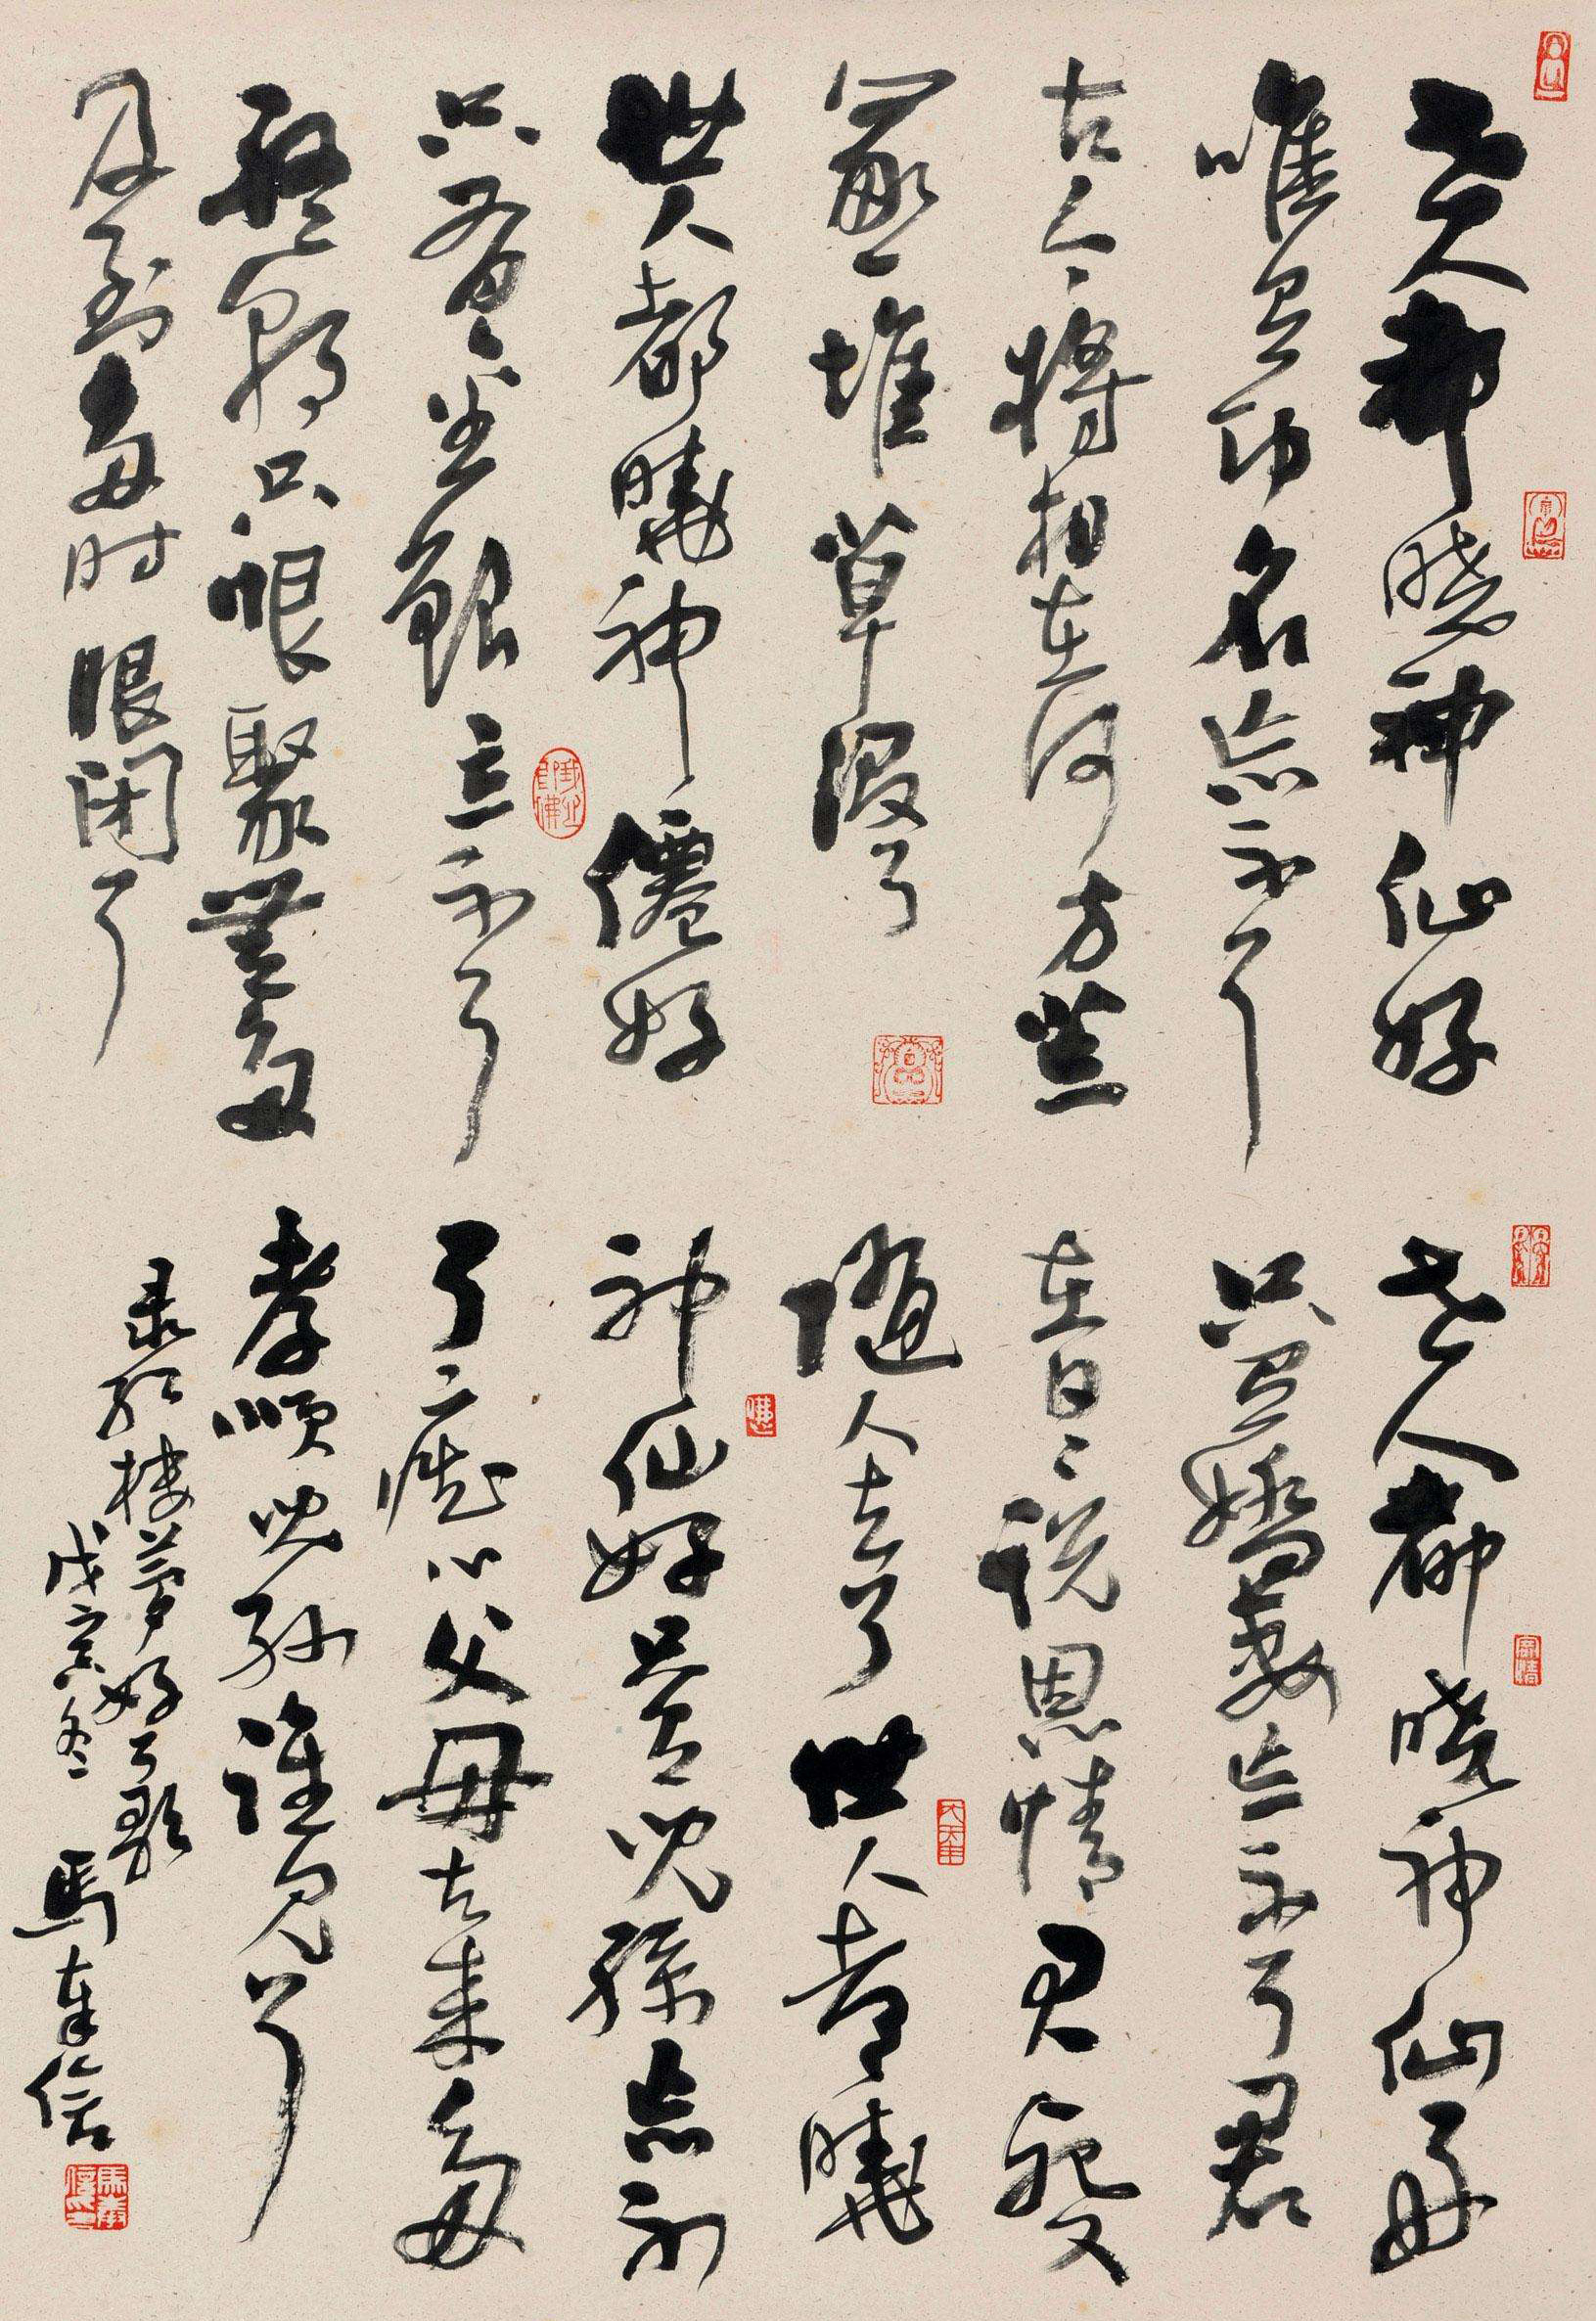 世人都晓神仙好
唯有功名忘不了
古今將相在何方荒
冢一堆草没了
世人都曉神僊好
只有金銀忘不了
終朝只恨聚無多
及到多时眼闭了
世人都晓神仙好
只有嬌妻忘不了君
在日日説恩情君死又
隨人去了世人都曉
神仙好只有兒孫忘不
了痴心父母古来多
孝順兒孙谁见了
录红楼梦好了歌
戊寅冬 馬奉信